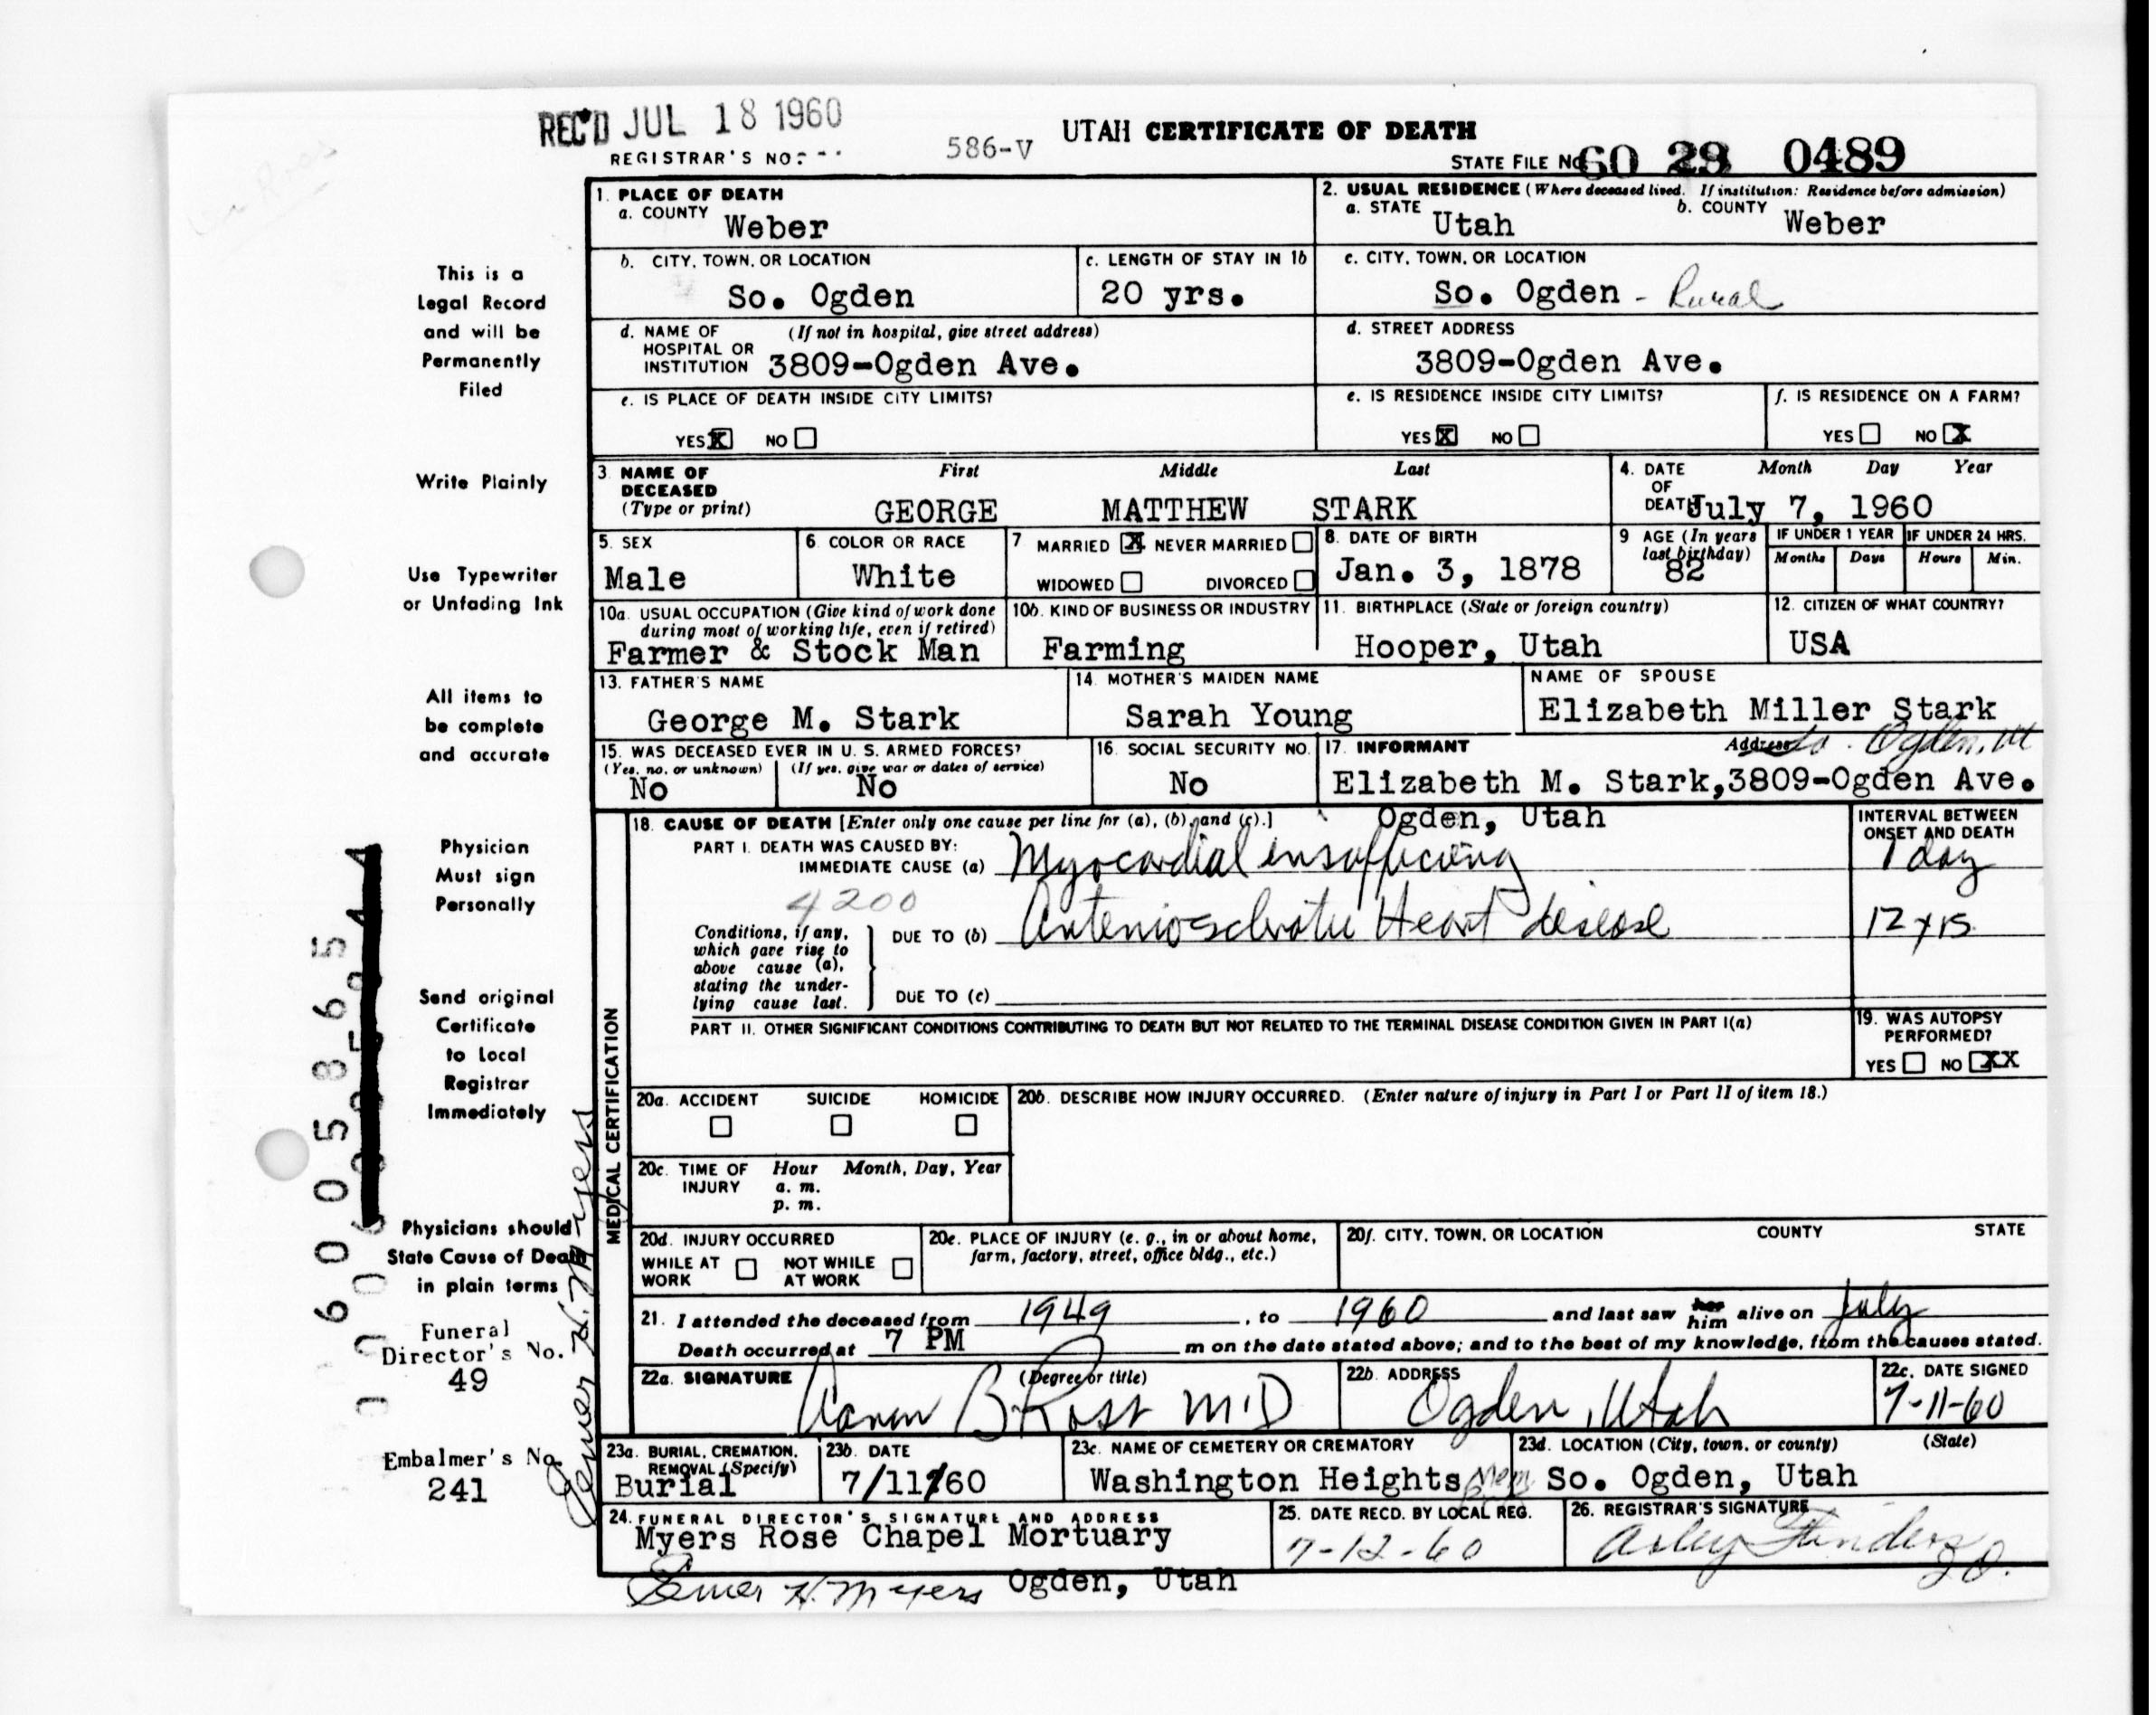 REC'D JUL 18 1960
REGISTRAR'S NO.
586-V
UTAH CERTIFICATE OF DEATH
STATE FILE NO. 60 29 0489
This is a
Legal Record
and will be
Permanently
Filed
Write Plainly
Use Typewriter
or Unfading Ink
All items to
be complete
and accurate
Physician
Must sign
Personally
Send original
Certificate
to Local
Registrar
Immediately
Physicians should
State Cause of Death
in plain terms
Funeral
Director's No.
49
Embalmer's No.
241
Elmer H. Myers
1. PLACE OF DEATH
a. COUNTY
Weber
2. USUAL RESIDENCE (Where deceased lived. If institution: Residence before admission)
a. STATE Utah b. COUNTY Weber
b. CITY, TOWN, OR LOCATION
So. Ogden
c. LENGTH OF STAY IN 1b
20 yrs.
c. CITY, TOWN, OR LOCATION
So. Ogden - Rural
d. NAME OF (If not in hospital, give street address)
HOSPITAL OR
INSTITUTION 3809-Ogden Ave.
d. STREET ADDRESS
3809-Ogden Ave.
e. IS PLACE OF DEATH INSIDE CITY LIMITS?
YES X NO
e. IS RESIDENCE INSIDE CITY LIMITS?
YES X NO
f. IS RESIDENCE ON A FARM?
YES NO X
3. NAME OF DECEASED (Type or print)
First Middle Last
GEORGE MATTHEW STARK
4. DATE OF DEATH
Month Day Year
July 7, 1960
5. SEX
Male
6. COLOR OR RACE
White
7 MARRIED X NEVER MARRIED
WIDOWED DIVORCED
8. DATE OF BIRTH
Jan. 3, 1878
9 AGE (In years last birthday)
82
IF UNDER 1 YEAR
Months Days
IF UNDER 24 HRS.
Hours Min.
10a. USUAL OCCUPATION (Give kind of work done
during most of working life, even if retired)
Farmer & Stock Man
10b. KIND OF BUSINESS OR INDUSTRY
Farming
11. BIRTHPLACE (State or foreign country)
Hooper, Utah
12. CITIZEN OF WHAT COUNTRY?
USA
13. FATHER'S NAME
George M. Stark
14. MOTHER'S MAIDEN NAME
Sarah Young
NAME OF SPOUSE
Elizabeth Miller Stark
15. WAS DECEASED EVER IN U. S. ARMED FORCES?
(Yes, no, or unknown) (If yes, give war or dates of service)
No No
16. SOCIAL SECURITY NO.
No
17. INFORMANT Address So. Ogden, Ut
Elizabeth M. Stark, 3809-Ogden Ave.
Ogden, Utah
MEDICAL CERTIFICATION
18. CAUSE OF DEATH [Enter only one cause per line for (a), (b), and (c).]
INTERVAL BETWEEN
ONSET AND DEATH
PART I. DEATH WAS CAUSED BY:
IMMEDIATE CAUSE (a) Myocardial insufficieny 1 day
4200
Conditions, if any,
which gave rise to
above cause (a),
stating the under-
lying cause last.
DUE TO (b) Arteriosclerotic Heart disease 12 yrs
DUE TO (c)
PART II. OTHER SIGNIFICANT CONDITIONS CONTRIBUTING TO DEATH BUT NOT RELATED TO THE TERMINAL DISEASE CONDITION GIVEN IN PART I(a)
19. WAS AUTOPSY
PERFORMED?
YES NO XX
20a. ACCIDENT SUICIDE HOMICIDE
20b. DESCRIBE HOW INJURY OCCURRED. (Enter nature of injury in Part I or Part II of item 18.)
20c. TIME OF INJURY Hour Month, Day, Year
a. m.
p. m.
20d. INJURY OCCURRED
WHILE AT WORK NOT WHILE AT WORK
20e. PLACE OF INJURY (e. g., in or about home,
farm, factory, street, office bldg., etc.)
20f. CITY, TOWN, OR LOCATION COUNTY STATE
21. I attended the deceased from 1949, to 1960 and last saw her him alive on July
Death occurred at 7 PM m on the date stated above; and to the best of my knowledge, from the causes stated.
22a. SIGNATURE (Degree or title)
B Rost M.D
22b. ADDRESS
Ogden, Utah
22c. DATE SIGNED
7-11-60
23a. BURIAL, CREMATION,
REMOVAL (Specify)
Burial
23b. DATE
7/11/60
23c. NAME OF CEMETERY OR CREMATORY
Washington Heights Mem
23d. LOCATION (City, town, or county) (State)
So. Ogden, Utah
24. FUNERAL DIRECTOR'S SIGNATURE AND ADDRESS
Myers Rose Chapel Mortuary
Elmer H. Myers Ogden, Utah
25. DATE RECD. BY LOCAL REG.
7-12-60
26. REGISTRAR'S SIGNATURE